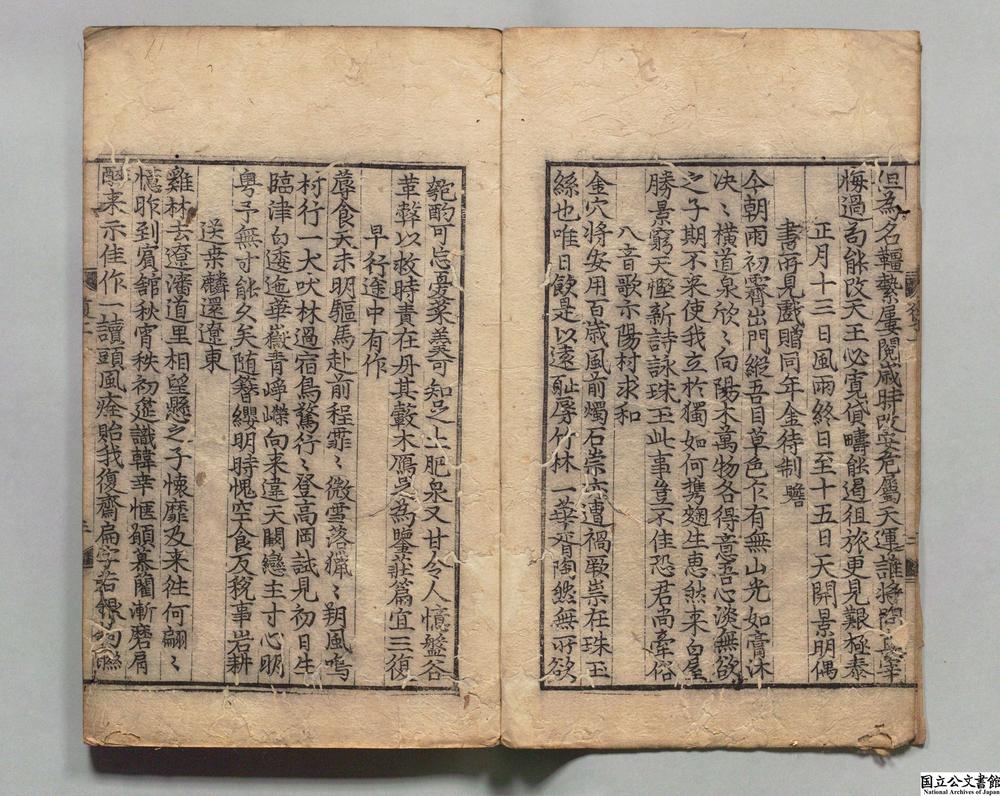 但為名韁繫屢閱歲時改安危屬天運誰將
悔過苟能改天王必寬貸疇能遏徂旅更見艱極泰
正月十三日風雨終日至十五日天開景明偶
書所見戲贈同年金待制瞻
今朝雨初霽出門縱吾目草色乍有無山光如膏沐
決〻橫道泉欣〻向陽木萬物各得意吾心淡無欲
之子期不來使我立於獨如何携麴生惠然来白屋
勝景窮天慳新詩詠珠玉此事豈不佳恐君尚牽俗
八音歌示陽村求和
金穴将安用百歲風前燭石崇亦遭禍厥崇在珠玉
絲也唯日飲是以遠耻辱竹林一華胥陶然無所欲
匏酌可忘憂菜羹可知足土肥泉又甘令人憶盤谷
革聲以教時書在丹其轂木鴈足為鑒莊篇宜三復
早行途中有作
蓐食天未明驅馬赴前程霏〻微雪落獵〻朔風鳴
村行一犬吠林過宿鳥驚行〻登高岡試見初日生
臨津白逶迤華嶽青崢嶸向来違天闕戀主寸心明
粤予無寸能久矣随簪纓明時愧空食反稅事岩耕
送桒麟還遼東
雞林去遼瀋道里相望懸之子懷靡及来徃何翩〻
憶昨到賓舘秋宵秩初筵識韓幸愜願慕藺漸磨肩
来示佳作一讀頭風痊貽我復齋扁字若銀鉤聮
國立公文書館
National Archives of Japan